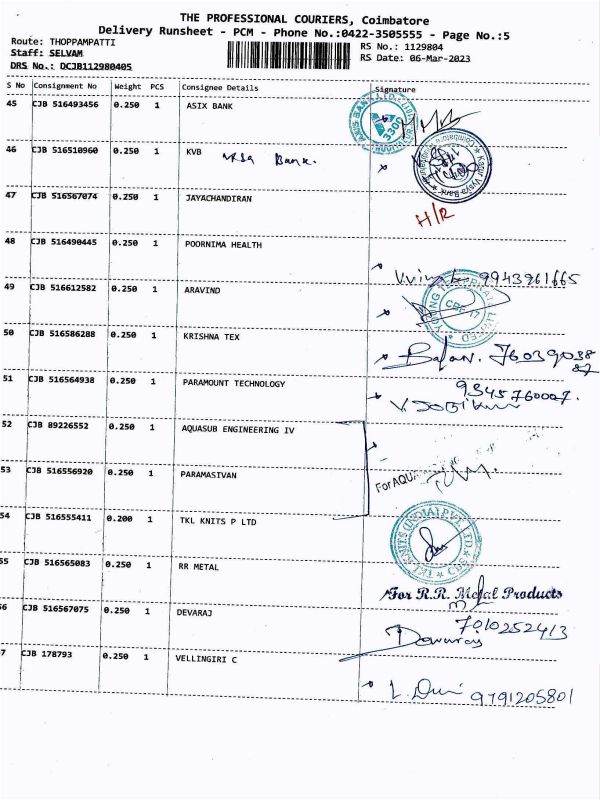 THE PROFESSIONAL COURIERS, Coimbatore
Delivery Runsheet - PCM - Phone No.:0422-3505555 - Page No.:5
Route: THOPPAMPATTI
RS No.: 1129804
Staff: SELVAM
RS Date: 06-Mar-2023
DRS No.: DCJB112980405
S No Consignment No Weight PCS Consignee Details Signature
45 CJB 516493456 0.250 1 ASIX BANK
46 CJB 516510960 0.250 1 KVB Bank.
47 CJB 516567074 0.250 1 JAYACHANDIRAN
H/R
48 CJB 516490445 0.250 1 POORNIMA HEALTH
9943961665
49 CJB 516612582 0.250 1 ARAVIND
50 CJB 516586288 0.250 1 KRISHNA TEX
51 CJB 516564938 0.250 1 PARAMOUNT TECHNOLOGY
9345760007.
52 CJB 89226552 0.250 1 AQUASUB ENGINEERING IV
For AQUA
53 CJB 516556920 0.250 1 PARAMASIVAN
54 CJB 516555411 0.200 1 TKL KNITS P LTD
TKL KNITS (INDIA) PVT. LTD
55 CJB 516565083 0.250 1 RR METAL
For R.R. Metal Products
56 CJB 516567075 0.250 1 DEVARAJ
7010252413
Devaraj
57 CJB 178793 0.250 1 VELLINGIRI C
9791205801